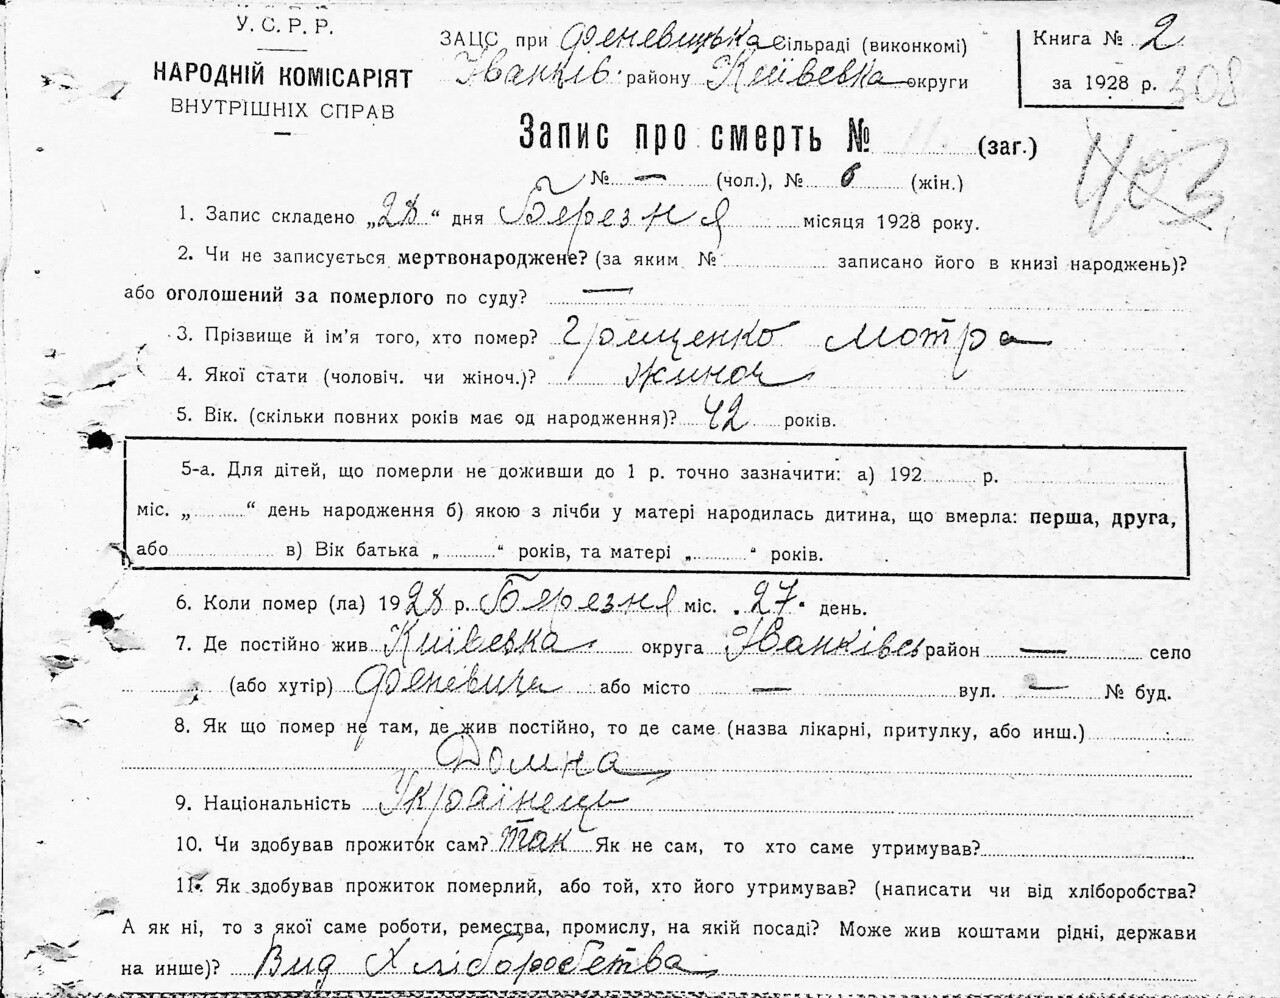 У. С. Р. Р.
НАРОДНІЙ КОМІСАРІЯТ
ВНУТРІШНІХ СПРАВ
ЗАЦС при Феневицька сільраді (виконкомі)
Іванків. району Київська округи
Книга № 2
за 1928 р. 308
Запис про смерть № 11. (заг.)
403
№ — (чол.), № 6 (жін.)
1. Запис складено „28“ дня Березня місяця 1928 року.
2. Чи не записується мертвонароджене? (за яким № записано його в книзі народжень)?
або оголошений за померлого по суду? —
3. Прізвище й ім'я того, хто помер? Грищенко Мотра
4. Якої стати (чоловіч. чи жіноч.)? жиноч
5. Вік. (скільки повних років має од народження)? 42 років.
5-а. Для дітей, що померли не доживши до 1 р. точно зазначити: а) 192 р.
міс. „ “ день народження б) якою з лічби у матері народилась дитина, що вмерла: перша, друга,
або в) Вік батька „ “ років, та матері „ “ років.
6. Коли помер (ла) 1928 р. Березня міс. „27“ день.
7. Де постійно жив Київська округа Іванківсь район — село
(або хутір) Феневичи або місто — вул. — № буд.
8. Як що помер не там, де жив постійно, то де саме (назва лікарні, притулку, або инш.)
Домна
9. Національність Українець
10. Чи здобував прожиток сам? Так Як не сам, то хто саме утримував?
11. Як здобував прожиток померлий, або той, хто його утримував? (написати чи від хліборобства?
А як ні, то з якої саме роботи, ремества, промислу, на якій посаді? Може жив коштами рідні, держави
на инше)? Вид Хліборобства